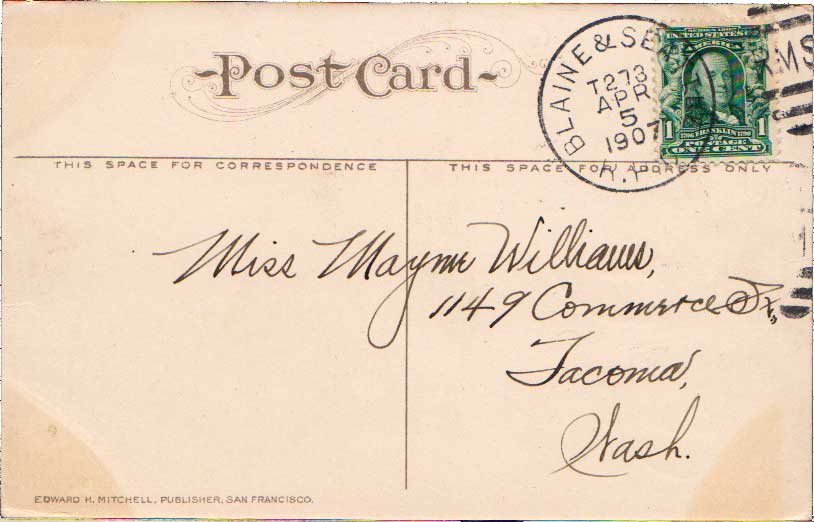 Post Card
BLAINE & SEA
T273
APR
5
1907
R.P.
RMS
SERIES 1902
UNITED STATES OF
AMERICA
1706 FRANKLIN 1790
1 POSTAGE 1
ONE CENT
THIS SPACE FOR CORRESPONDENCE
THIS SPACE FOR ADDRESS ONLY
Miss Mayme Williams,
1149 Commerce St.,
Tacoma,
Wash.
EDWARD H. MITCHELL, PUBLISHER, SAN FRANCISCO.